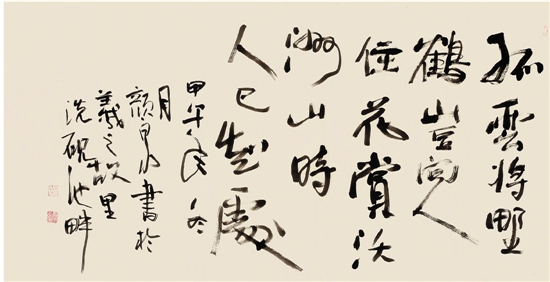 孤雲將野
鶴豈向人
住花賞沃
洲山時
人已知處
甲午冬
月顏書於
羲之故里
洗硯池畔